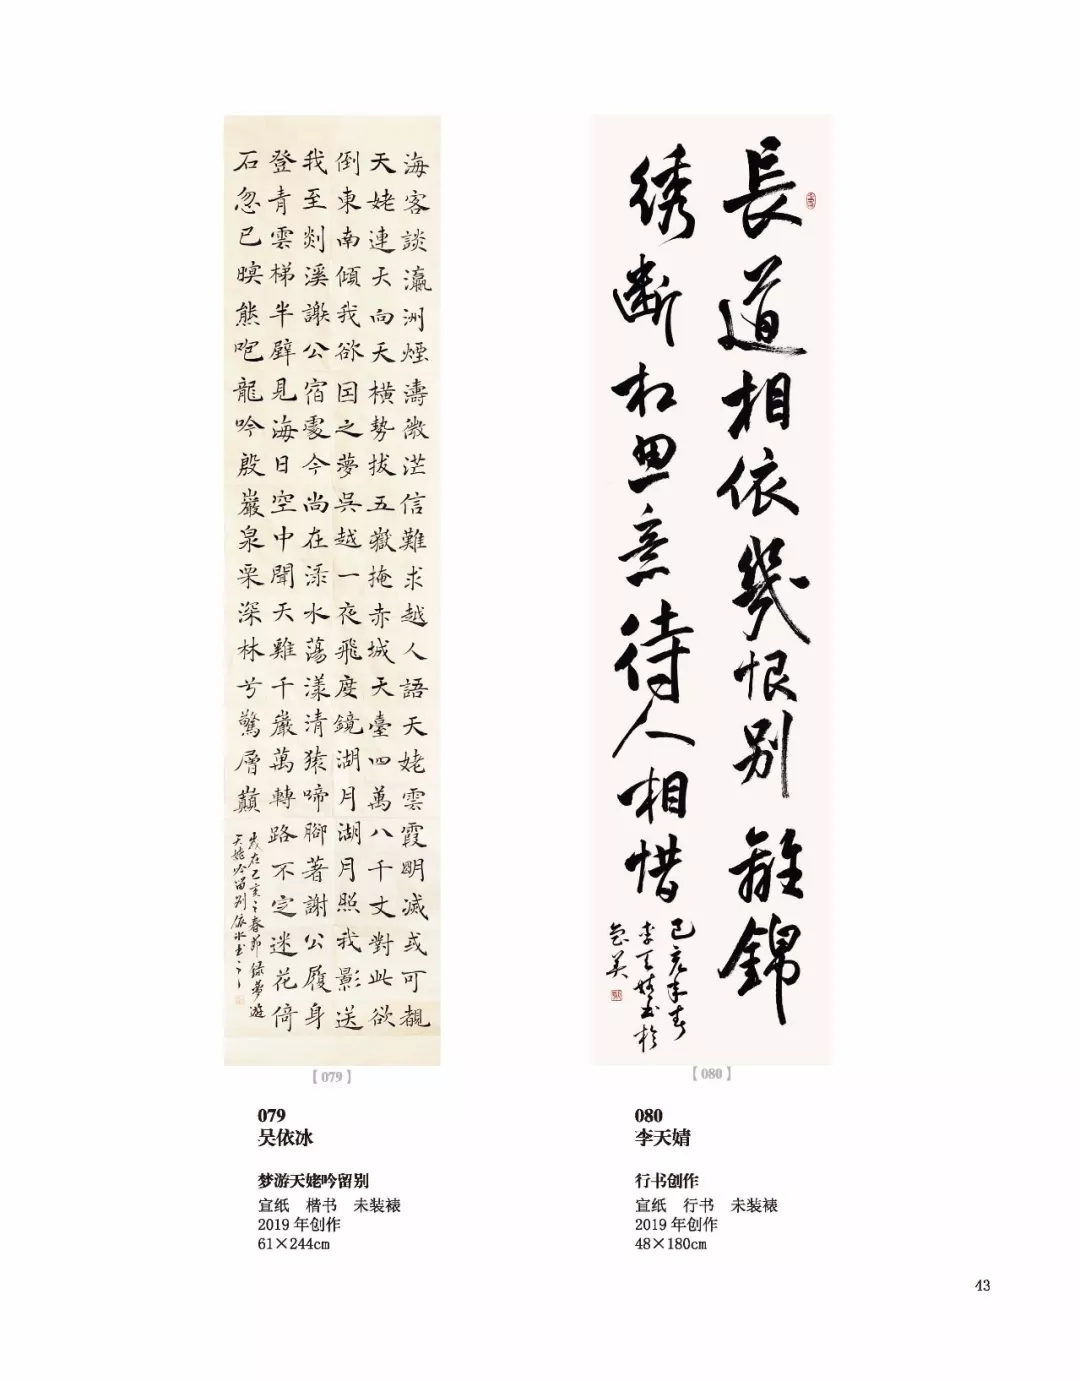 海客談瀛洲煙濤微茫信難求越人語天姥雲霞明滅或可覩
天姥連天向天橫勢拔五嶽掩赤城天臺四萬八千丈對此欲
倒東南傾我欲囙之夢吳越一夜飛度鏡湖月湖月照我影送
我至剡溪謝公宿處今尚在淥水蕩漾清猿啼腳著謝公屐身
登青雲梯半壁見海日空中聞天雞千巖萬轉路不定迷花倚
石忽已暝熊咆龍吟殷巖泉栗深林兮驚層巔
歲在己亥之春節録夢遊
天姥吟留别依冰書
【079】
079
吴依冰
梦游天姥吟留别
宣纸 楷书 未装裱
2019 年创作
61×244cm
長道相依幾恨别離錦
绣斷相思意待人相惜
己亥年春
李天婧書於
魯美
【080】
080
李天婧
行书创作
宣纸 行书 未装裱
2019 年创作
48×180cm
43